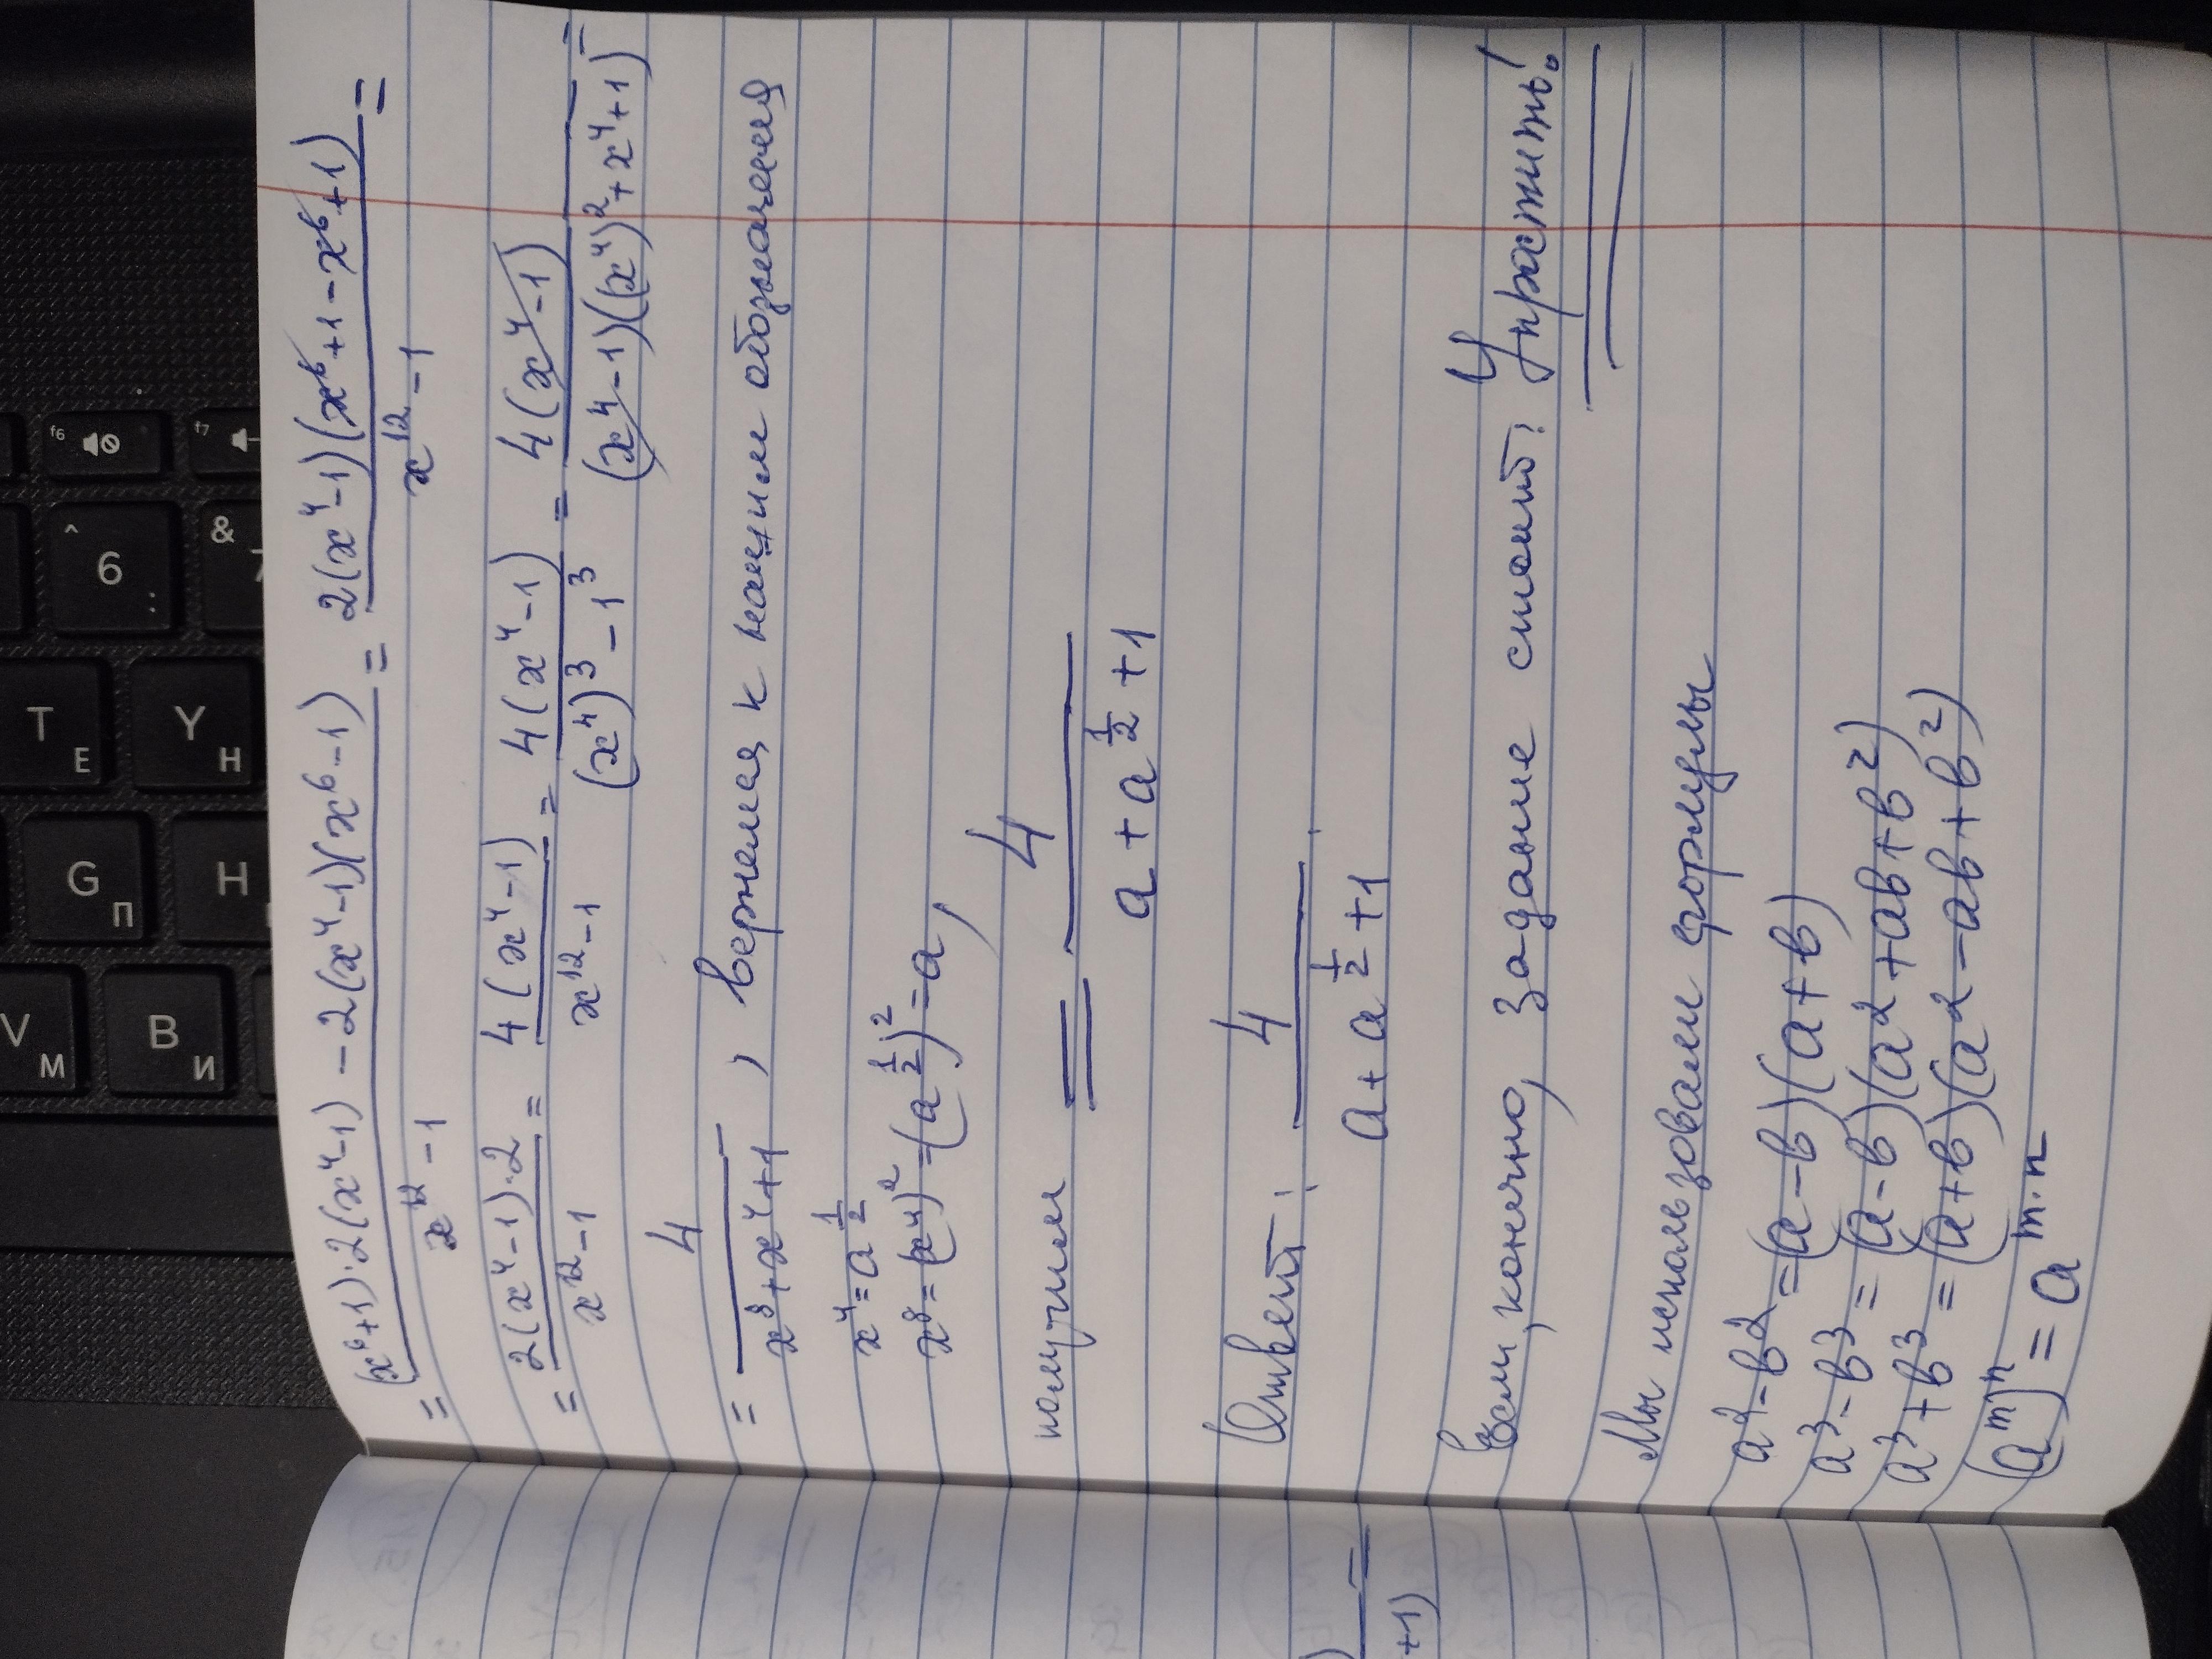 = (x⁶+1)·2(x⁴-1) - 2(x⁴-1)(x⁶-1) / x¹² - 1 = 2(x⁴-1)(x⁶+1-x⁶+1) / x¹² - 1 =
= 2(x⁴-1)·2 / x¹²-1 = 4(x⁴-1) / x¹²-1 = 4(x⁴-1) / (x⁴)³ - 1³ = 4(x⁴-1) / (x⁴-1)((x⁴)²+x⁴+1) =
= 4 / x⁸+x⁴+1 , вернемся к нашим обозначения
x⁴ = a^(1/2)
x⁸ = (x⁴)² = (a^(1/2))² = a,
получим = 4 / a + a^(1/2) + 1
Ответ: 4 / a + a^(1/2) + 1
Если, конечно, задание стоит: Упростить!
Мы использовали формулы
a² - b² = (a - b)(a + b)
a³ - b³ = (a - b)(a² + ab + b²)
a³ + b³ = (a + b)(a² - ab + b²)
(aᵐ)ⁿ = aᵐ·ⁿ
+1)
f6
f7
^
6
&
7
T
Е
Y
Н
G
П
H
V
М
B
И